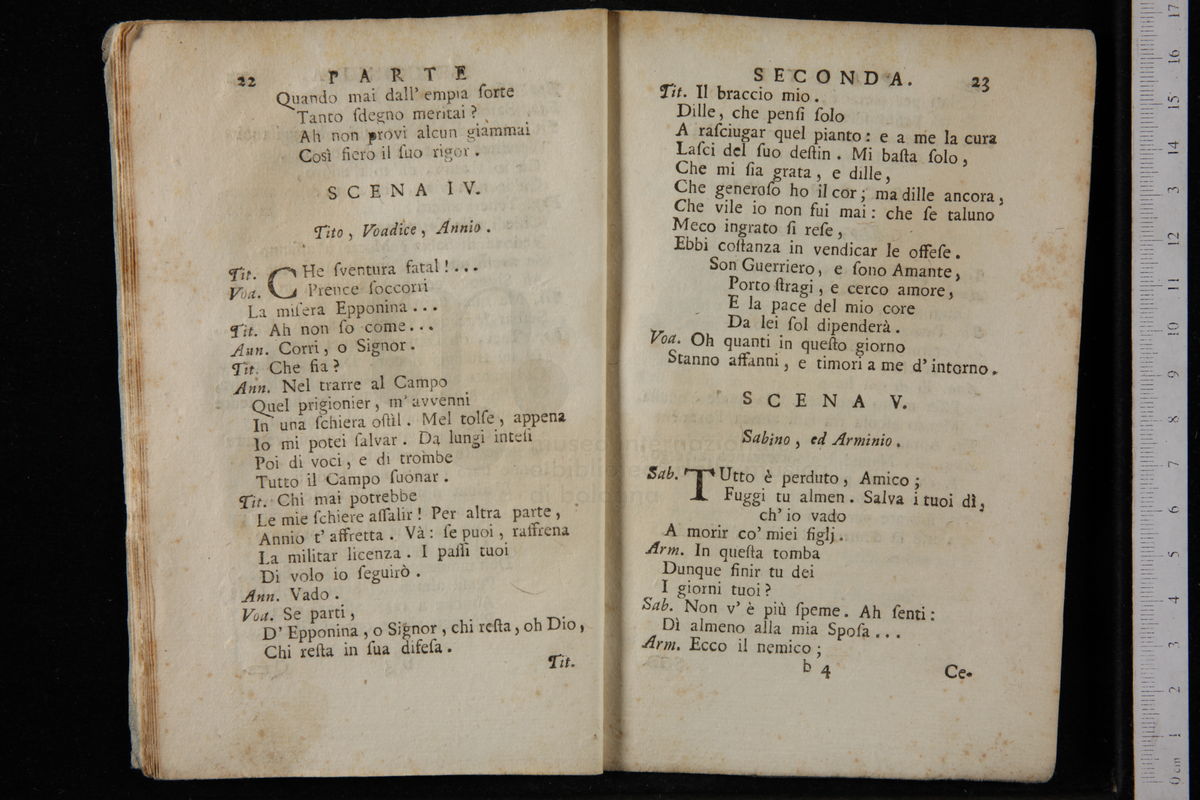 22 PARTE
Quando mai dall' empia ſorte
Tanto ſdegno meritai?
Ah non provi alcun giammai
Così fiero il ſuo rigor.
SCENA IV.
Tito, Voadice, Annio.
Tit. CHe ſventura fatal!...
Voa. Prence ſoccorri
La miſera Epponina...
Tit. Ah non ſo come...
Ann. Corri, o Signor.
Tit. Che fia?
Ann. Nel trarre al Campo
Quel prigionier, m'avvenni
In una ſchiera oſtil. Mel tolſe, appena
Io mi potei ſalvar. Da lungi inteſi
Poi di voci, e di trombe
Tutto il Campo ſuonar.
Tit. Chi mai potrebbe
Le mie ſchiere aſſalir! Per altra parte,
Annio t'affretta. Và: ſe puoi, raffrena
La militar licenza. I paſſi tuoi
Di volo io ſeguirò.
Ann. Vado.
Voa. Se parti,
D'Epponina, o Signor, chi reſta, oh Dio,
Chi reſta in ſua difeſa.
Tit.
SECONDA. 23
Tit. Il braccio mio.
Dille, che penſi ſolo
A raſciugar quel pianto: e a me la cura
Laſci del ſuo deſtin. Mi baſta ſolo,
Che mi ſia grata, e dille,
Che generoſo ho il cor; ma dille ancora,
Che vile io non fui mai: che ſe taluno
Meco ingrato ſi reſe,
Ebbi coſtanza in vendicar le offeſe.
Son Guerriero, e ſono Amante,
Porto ſtragi, e cerco amore,
E la pace del mio core
Da lei ſol dipenderà.
Voa. Oh quanti in queſto giorno
Stanno affanni, e timori a me d'intorno.
SCENA V.
Sabino, ed Arminio.
Sab. TUtto è perduto, Amico;
Fuggi tu almen. Salva i tuoi dì,
ch'io vado
A morir co' miei figlj.
Arm. In queſta tomba
Dunque finir tu dei
I giorni tuoi?
Sab. Non v'è più ſpeme. Ah ſenti:
Dì almeno alla mia Spoſa...
Arm. Ecco il nemico;
b 4 Ce-